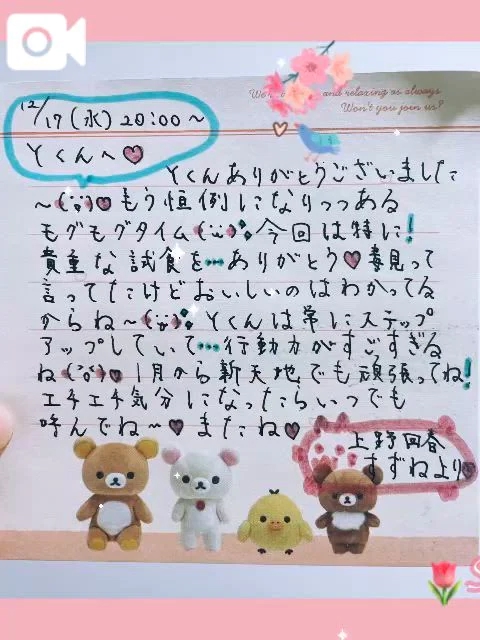 We're and relaxing as always
Won't you join us?
12/17(水)20:00〜
Yくんへ♡
Yくんありがとうございました
〜(¨̮)♡もう恒例になりつつある
モグモグタイム(¨̮)今回は特に!
貴重な試食を…ありがとう♡毒見って
言ってたけどおいしいのはわかってる
からね〜(¨̮) Yくんは常にステップ
アップしていて…行動力がすごすぎる
ね(¨̮)♡1月から新天地でも頑張ってね!
エチエチ気分になったらいつでも
呼んでね〜♡またね♡
上野回春
すずねより♡